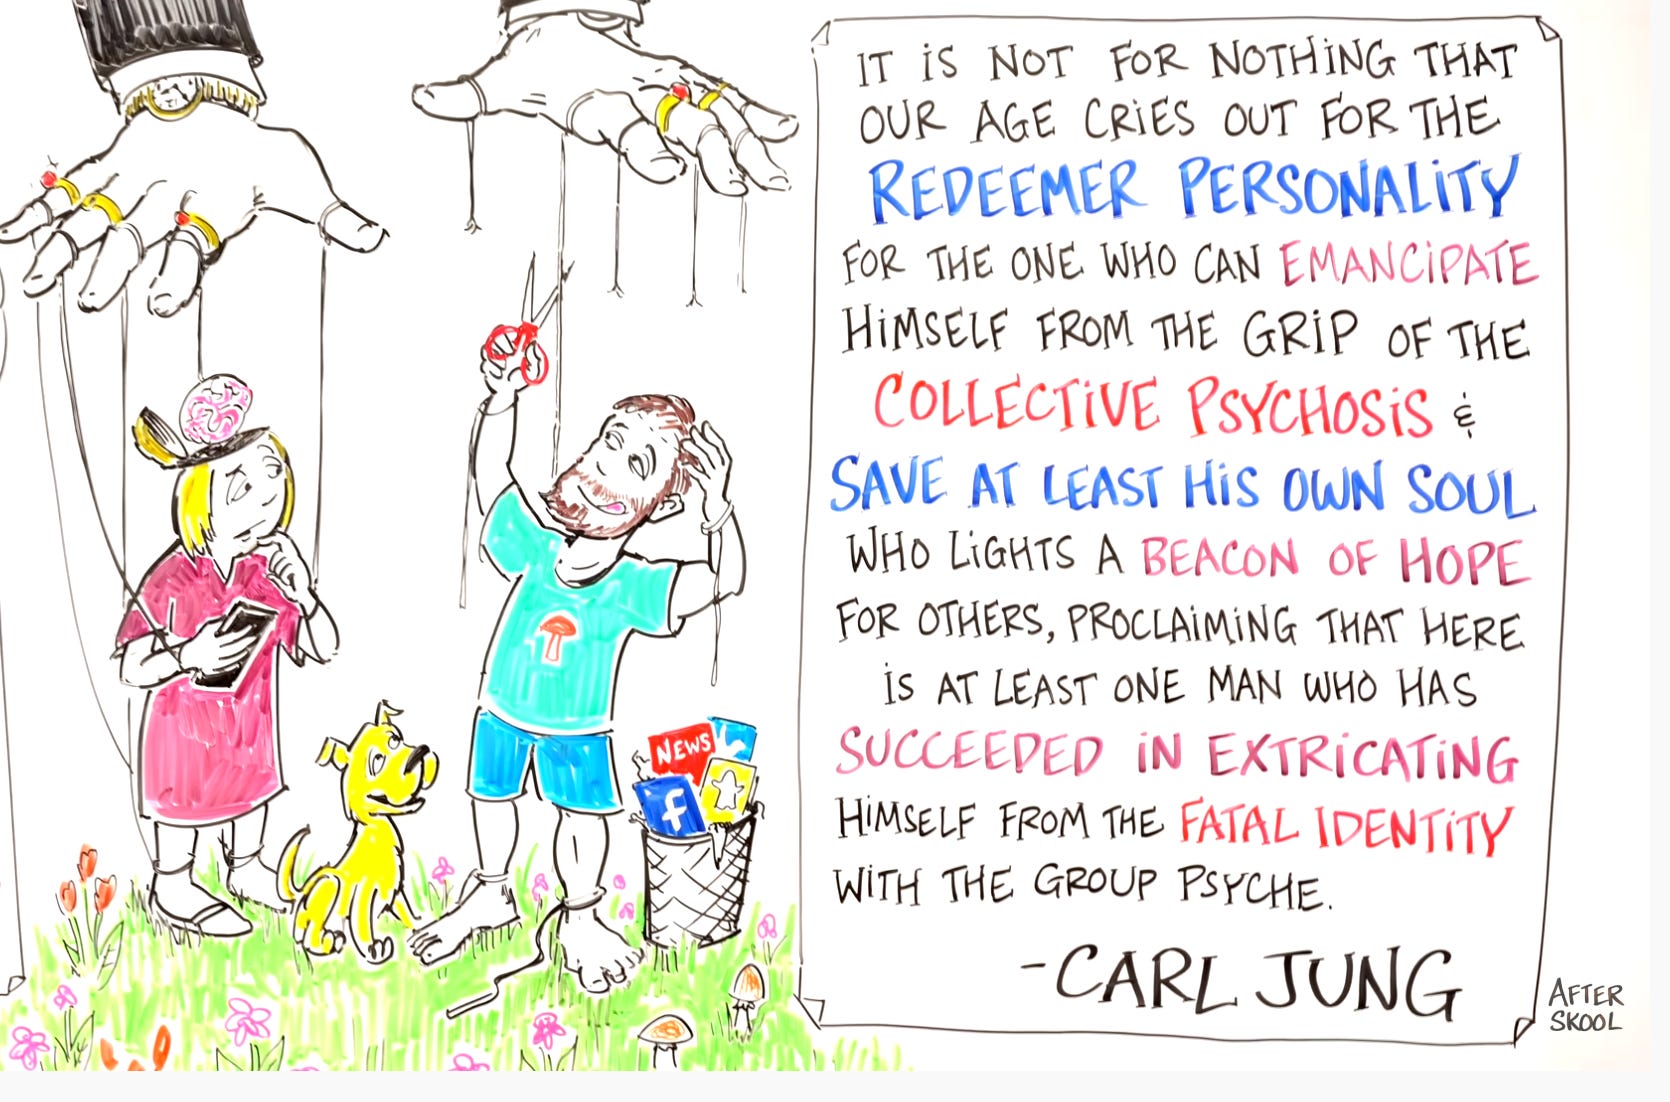 IT IS NOT FOR NOTHING THAT
OUR AGE CRIES OUT FOR THE
REDEEMER PERSONALITY
FOR THE ONE WHO CAN EMANCIPATE
HIMSELF FROM THE GRIP OF THE
COLLECTIVE PSYCHOSIS &
SAVE AT LEAST HIS OWN SOUL
WHO LIGHTS A BEACON OF HOPE
FOR OTHERS, PROCLAIMING THAT HERE
IS AT LEAST ONE MAN WHO HAS
SUCCEEDED IN EXTRICATING
HIMSELF FROM THE FATAL IDENTITY
WITH THE GROUP PSYCHE.
-CARL JUNG
NEWS
f
AFTER
SKOOL